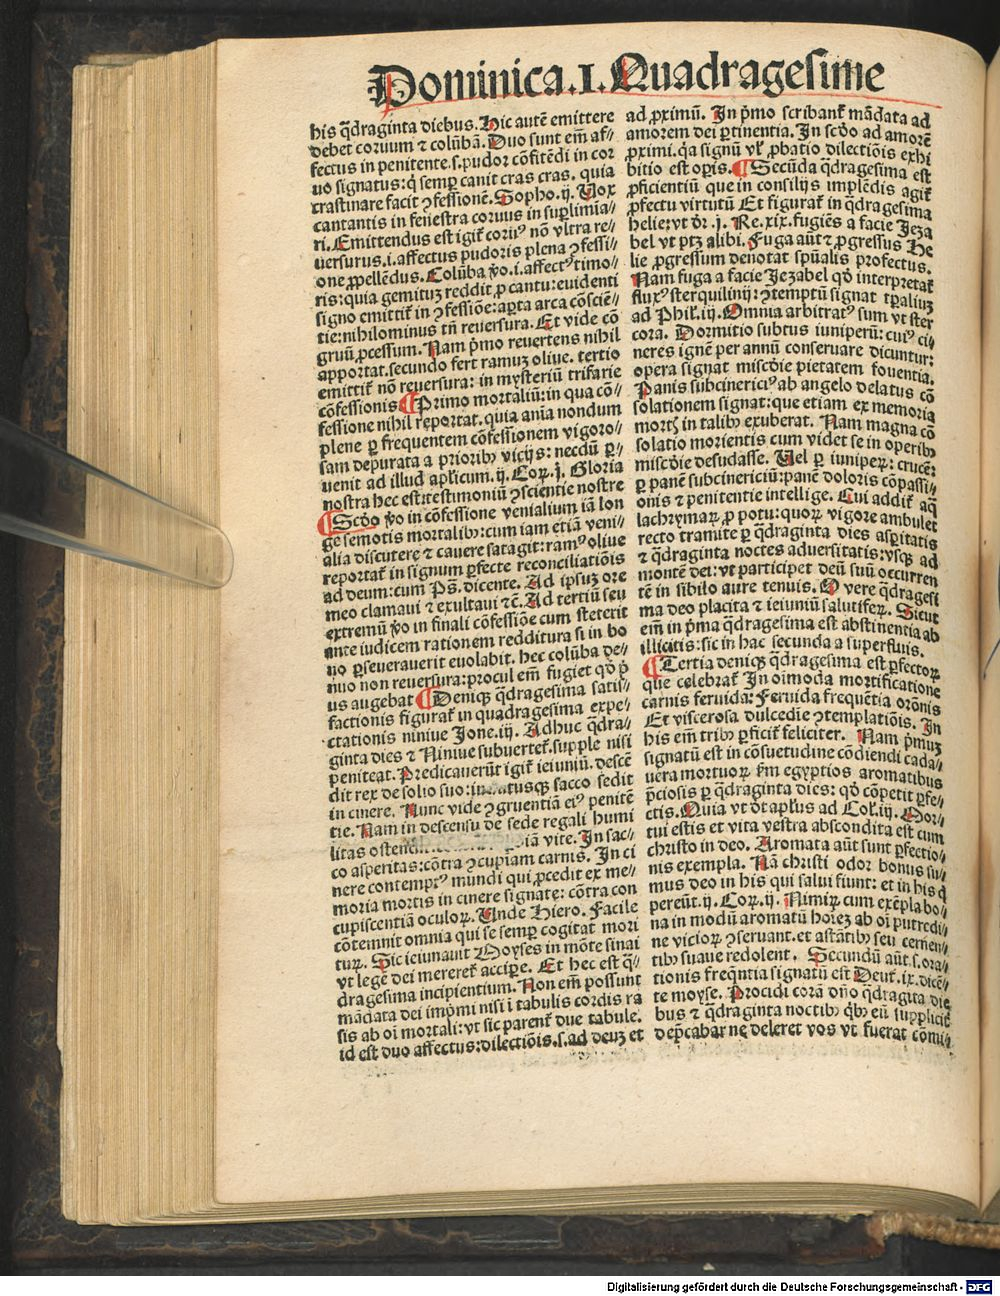 Dominica.I.Quadragesime
his q̄draginta diebus. Hic autē emittere
debet coruum ⁊ colūbā. Duo sunt em̄ af⸗
fectus in penitente.s.pudor cōfitēdi in cor
uo signatus: q̇ semꝑ canit cras cras. quia
crastinare facit ꝯfessionē. Sopho.ij. Vox
cantantis in fenestra coruus in suꝑlimia⸗
ri. Emittendus est igit̄ coruꝰ nō vltra re⸗
uersurus.i.affectus pudoris plena ꝯfessi⸗
one ꝓpellēdus. Colūba v̄o.i.affectꝰ timo⸗
ris: quia gemituz reddit ꝓ cantu: euidenti
signo emittit̄ in ꝯfessiōe: aꝑta arca cōsciē⸗
tie: nihilominus tn̄ reuersura. Et vide cō
gruū ꝓcessum. Nam p̄mo reuertens nihil
apportat. secundo fert ramuz oliue. tertio
emittit̄ nō reuersura: in mysteriū trifarie
cōfessionis ¶Primo mortaliū: in qua cō⸗
fessione nihil reportat. quia anīa nondum
plene ꝑ frequentem cōfessionem vigoro⸗
sam depurata a prioribꝫ vicijs: necdū ꝑ⸗
uenit ad illud apl̄icum.ij.Coꝝ.j. Gloria
nostra hec est: testimoniū ꝯscientie nostre
¶Scd̄o v̄o in cōfessione venialium iā lon
ge semotis mortalibꝫ: cum iam etiā veni⸗
alia discutere ⁊ cauere satagit: ramꝰ oliue
reportat̄ in signum ꝑfecte reconciliatiōis
ad deum: cum Ps̄. dicente. Ad ipsuz ore
meo clamaui ⁊ exultaui ⁊c̄. Ad tertiū seu
extremū v̄o in finali cōfessiōe cum steterit
ante iudicem rationem redditura si in bo
no ꝑseuerauerit euolabit. hec colūba de⸗
nuo non reuersura: procul em̄ fugiet qd̄ p̄
us augebat ¶Deniqꝫ q̄dragesima satis⸗
factionis figurat̄ in quadragesima expe⸗
ctationis niniue Jone.iij. Adhuc q̄dra⸗
ginta dies ⁊ Niniue subuertet̄. supple nisi
peniteat. Predicauerūt igit̄ ieiuniū. descē
dit rex de solio suo: sacco sedit
in cinere. Nunc vide ꝯgruentiā eiꝰ penitē
tie. Nam in descensu de sede regali humi
litas vite. In sac⸗
co asperitas: cōtra ꝯcupiam carnis. In ci
nere contemptꝰ mundi qui ꝓcedit ex me⸗
moria mortis in cinere signate: cōtra con
cupiscentiā oculoꝝ. Unde Hiero. Facile
cōtemnit omnia qui se semꝑ cogitat mori
turꝝ. Sic ieiunauit Moyses in mōte sinai
vt lege dei mereret̄ acciꝑe. Et hec est q̄⸗
dragesima incipientium. Non em̄ possunt
mādata dei imp̄mi nisi ī tabulis cordis ra
sis ab oī mortali: vt sic parent̄ due tabule.
id est duo affectus: dilectiōis.s.ad deuz et
ad ꝓximū. In p̄mo scribant̄ mādata ad
amorem dei ꝑtinentia. In scd̄o ad amorē
ꝓximi. q̄a signū vl̄ ꝓbatio dilectiōis exhi
bitio est oꝑis. ¶Secūda q̄dragesima est
ꝓficientiū que in consilijs implēdis agit̄
ꝓfectu virtutū Et figurat̄ in q̄dragesima
helie: vt dr̄.j. Re.xix. fugiēs a facie Jeza
bel vt ptꝫ alibi. Fuga aūt ⁊ ꝓgressus He
lie ꝓgressum denotat spūalis profectus.
Nam fuga a facie Jezabel qd̄ interpretat̄
fluxꝰ sterquilinij: ꝯtemptū signat tꝑaliuz
ad Phil̄.iij. Omnia arbitratꝰ sum vt ster
cora. Dormitio subtus iuniperū: cuiꝰ ci⸗
neres ignē per annū conseruare dicuntur:
opera signat misc̄die pietatem fouentia.
Panis subcinericiꝰ ab angelo delatus cō
solationem signat: que etiam ex memoria
mortꝭ in talibꝫ exuberat. Nam magna cō
solatio morientis cum videt se in operibꝫ
misc̄die desudasse. Uel ꝑ iuniperꝝ: crucē:
ꝑ panē subcinericiū: panē doloris cōpassi⸗
onis ⁊ penitentie intellige. Cui addit̄ aq̄
lachrymaꝝ ꝓ potu: quoꝝ vigore ambulet
recto tramite ꝑ q̄draginta dies asꝑitatis
⁊ q̄draginta noctes aduersitatis: vsqꝫ ad
montē dei: vt participet deū suū occurren
tē in sibilo aure tenuis. O vere q̄dragesi
ma deo placita ⁊ ieiuniū salutifeꝝ. Sicut
em̄ in p̄ma q̄dragesima est abstinentia ab
illicitis: sic in hac secunda a superfluis.
¶Tertia deniqꝫ q̄dragesima est ꝑfectoꝝ
que celebrat̄ In oīmoda mortificatione
carnis feruida: Feruida frequētia orōnis
Et viscerosa dulcedīe ꝯtemplatiōis. In
his em̄ tribꝫ ꝑficit̄ feliciter. Nam p̄muz
signatū est in cōsuetudine cōdiendi cada⸗
uera mortuoꝝ ẜm egyptios aromatibus
p̄ciosis ꝑ q̄draginta dies: qd̄ cōpetit ꝑfe⸗
ctis. Quia vt d̄t apl̄us ad Col̄.iij. Mor⸗
tui estis et vita vestra abscondita est cum
christo in deo. Aromata aūt sunt ꝑfectio⸗
nis exempla. Nā christi odor bonus su⸗
mus deo in his qui salui fiunt: et in his q̇
pereūt.ij. Coꝝ.ij. Nimiꝝ cum exēpla bo⸗
na in modū aromatū hoīez ab oī putredi⸗
ne vicioꝝ ꝯseruant. et astātibꝫ seu cernen⸗
tibꝫ suaue redolent. Secundū aūt.s.ora⸗
tionis freq̄ntia signatū est Deut̄.ix. dicē⸗
te moyse. Procidi corā dn̄o q̄dragīta die
bus ⁊ q̄draginta noctibꝫ q̇bꝫ eū supplicit̄
dep̄cabar ne deleret vos vt fuerat cōmi⸗
Digitalisierung gefördert durch die Deutsche Forschungsgemeinschaft - DFG